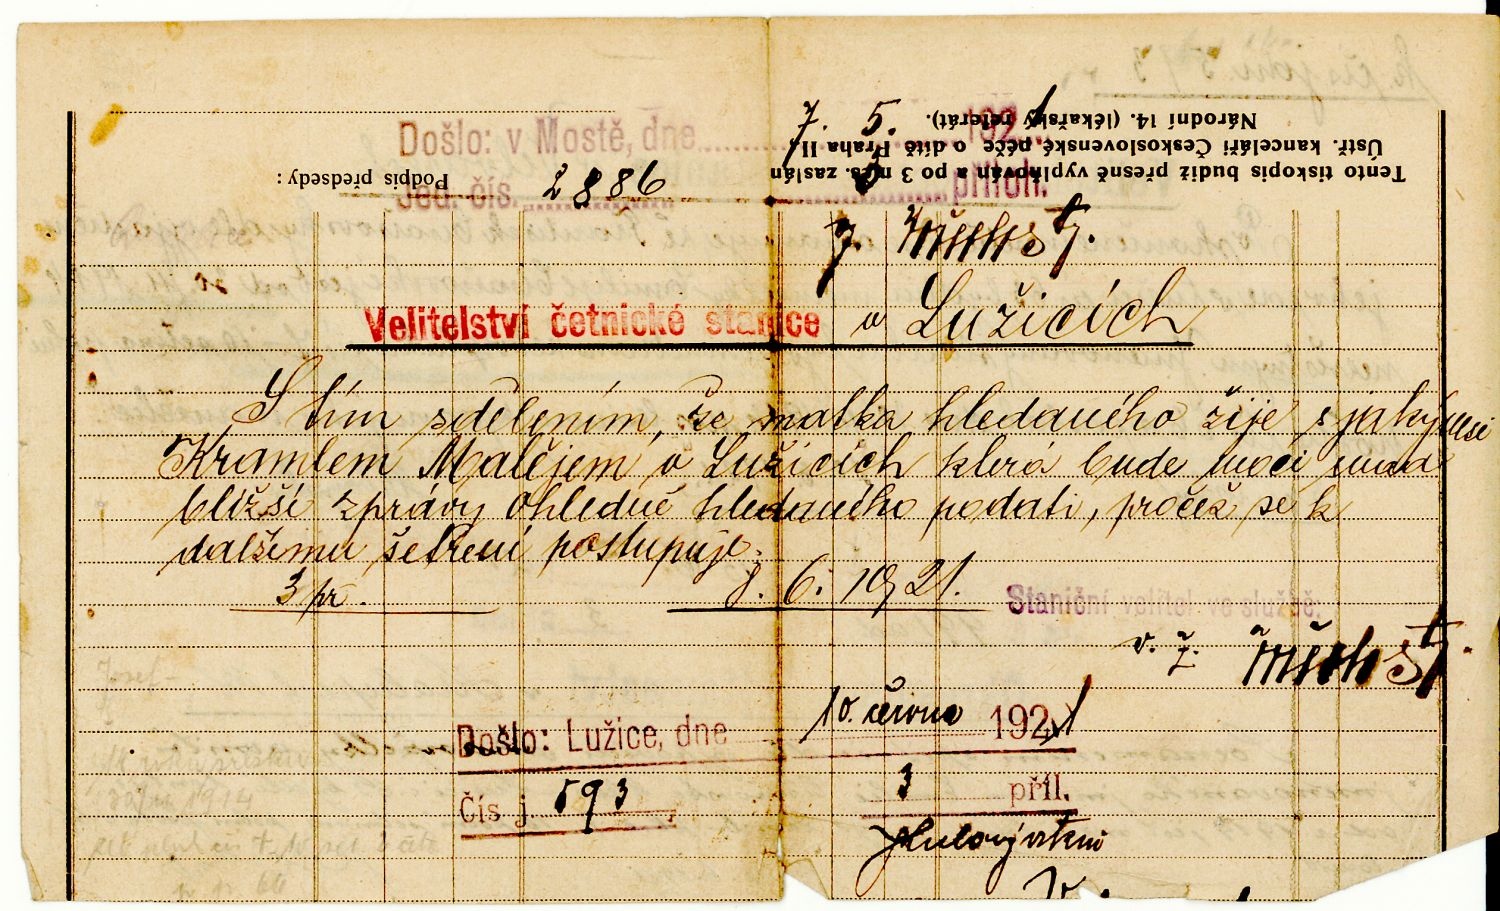 Národní 14. (lékařský referát).
Ústř. kanceláři Československé péče o dítě Praha II.
Tento tiskopis budiž přesně vyplňován a po 3 měs. zaslán
Podpis předsedy:
Došlo: v Mostě, dne 7. 5. 1921
Jed. čís. 2886 příloh.
Velitelství četnické stanice v Lužicích
S tím sdělením, že matka hledaného žije s jakýmsi
Kramlem Matějem v Lužicích která bude moci snad
bližší zprávy ohledně hledaného podati, pročež se k
dalšímu šetření postupuje.
3 př. 8. 6. 1921.
Staniční velitel ve službě:
v. z.
Došlo: Lužice, dne 10. června 1921
Čís. j. 593 3 příl.